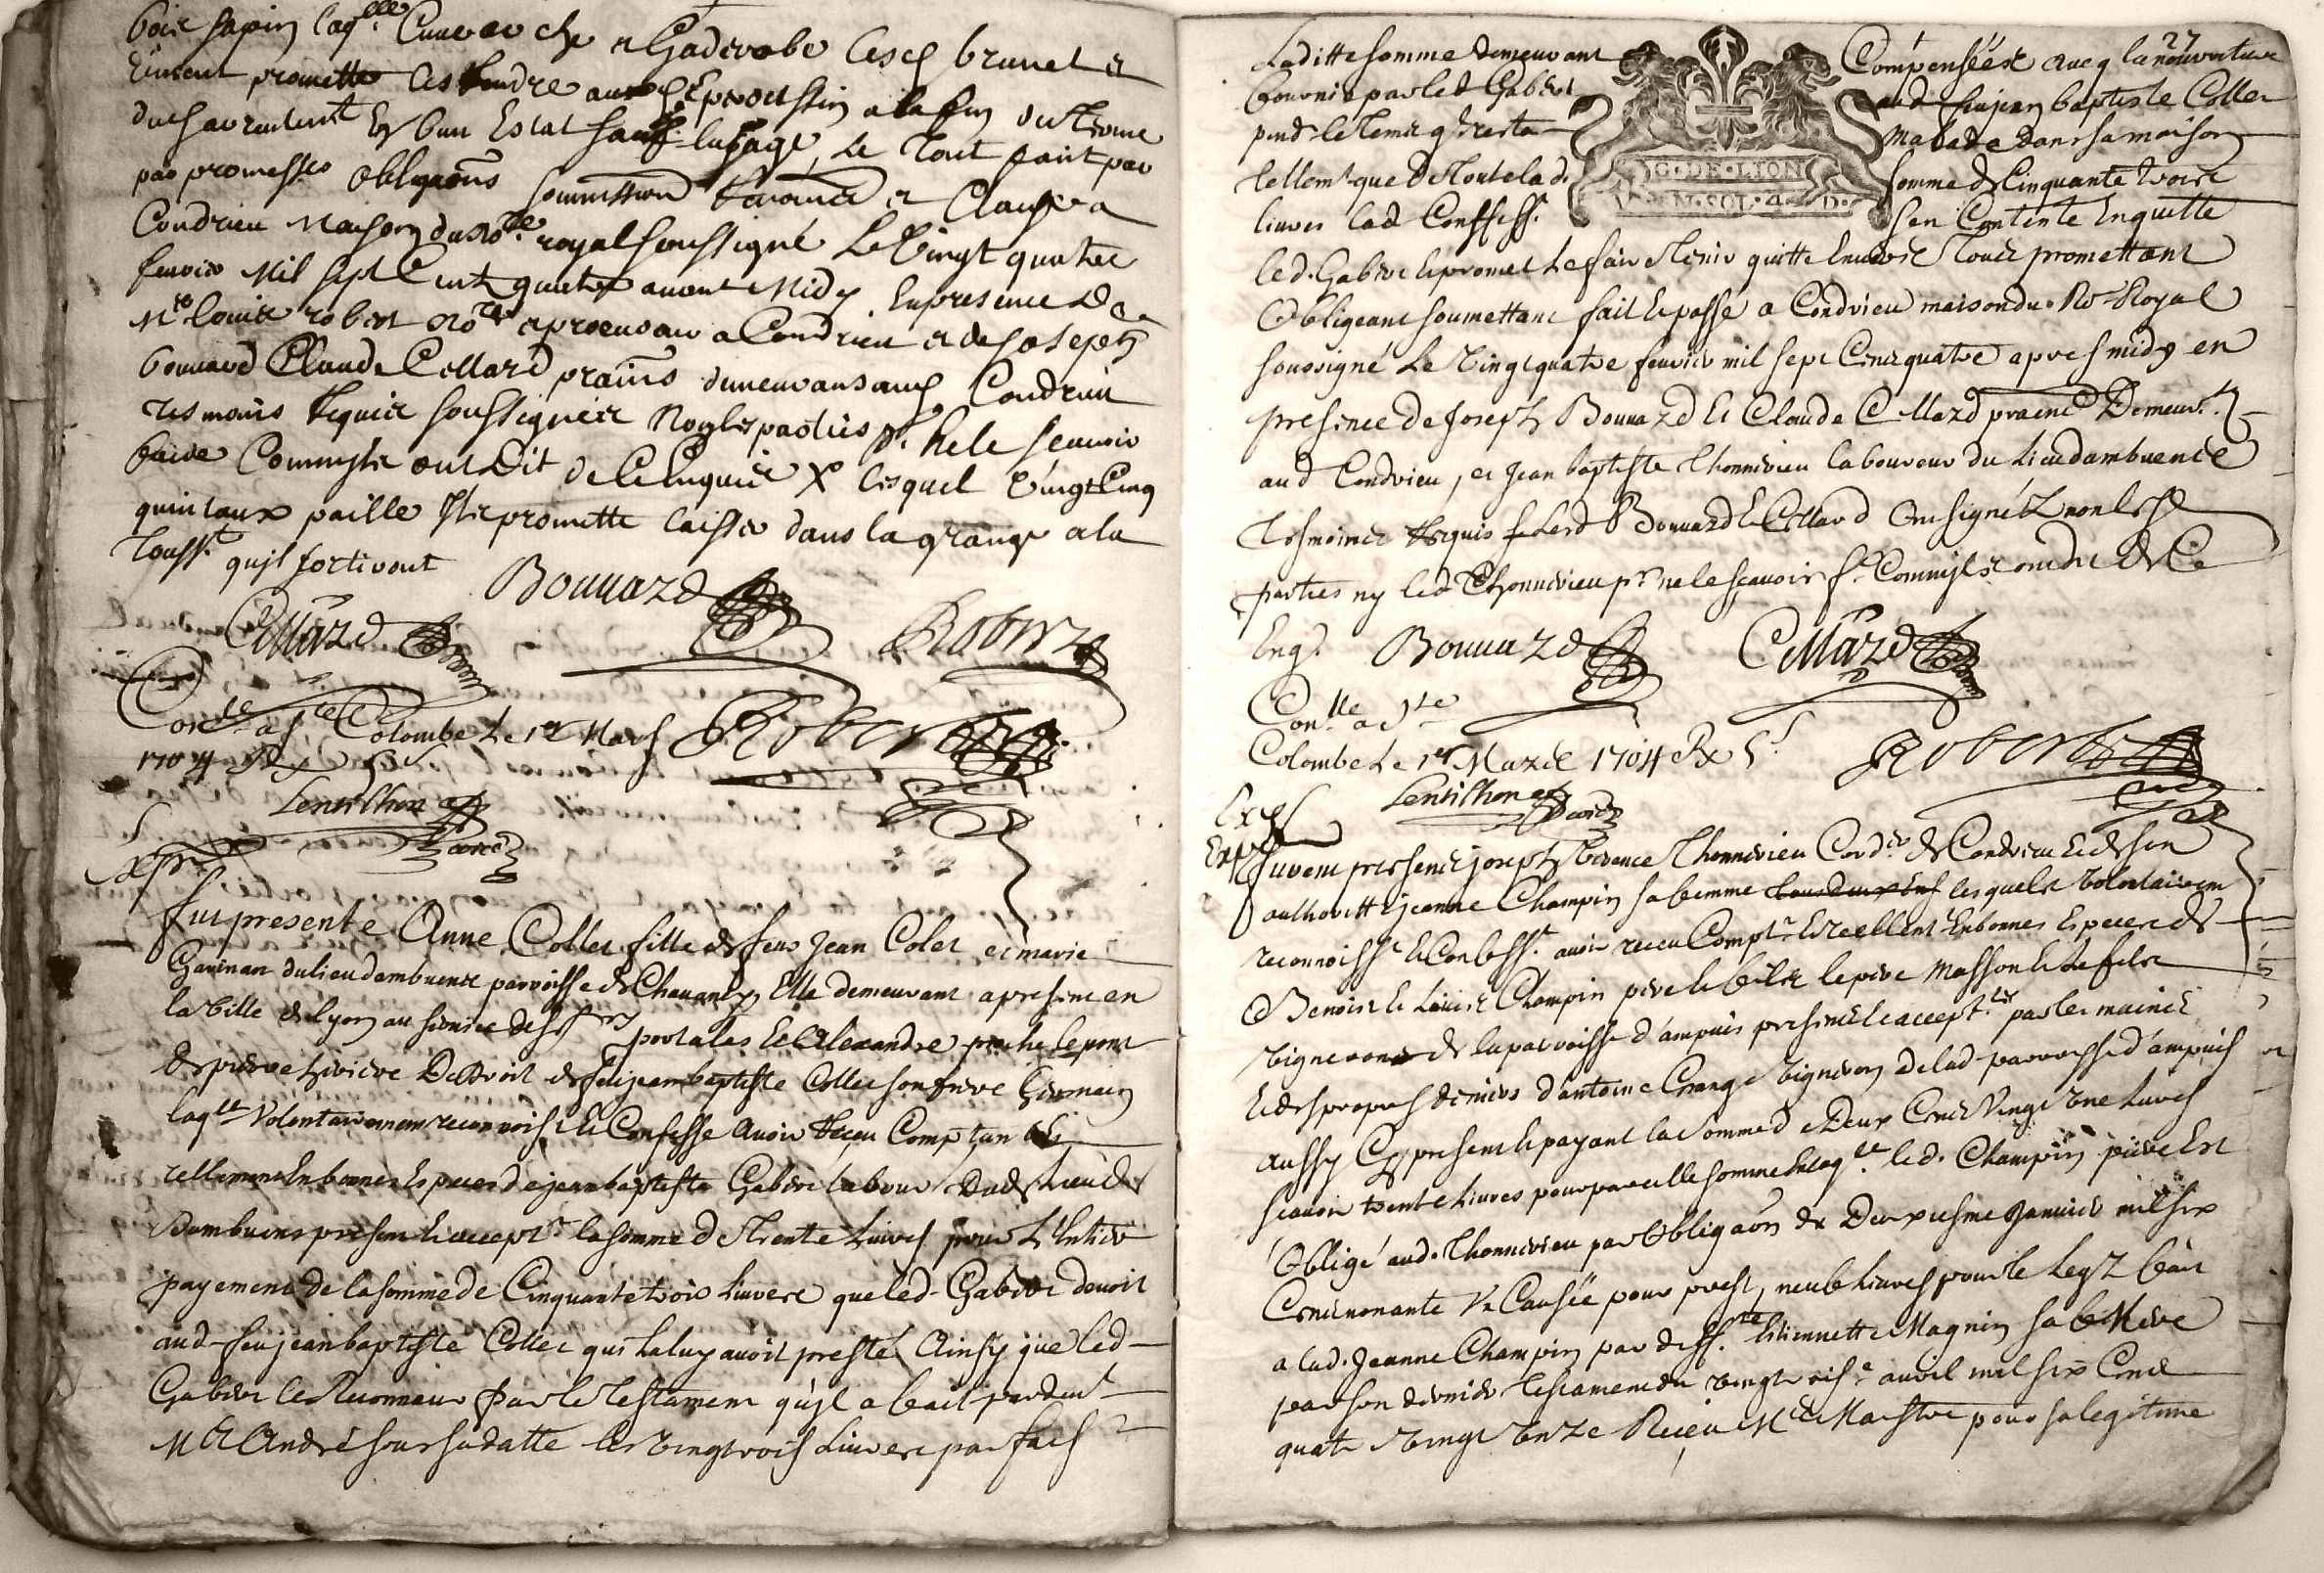 bois sapin laq.lle Cuue arche & Gaderobe lesd brunet &
promette les Rendre aud Eperoussin a la fin du Terme
En bon Estat sauf lusage, Le Tout fait par
par promesses obligaons soumission & Clauses a
Condrieu Maison du No.re royal soussigné Le Vingt quatre
feurier Mil sept Cent quatre auant Midy En presence De
M.re louis robert No.re & procureur a Condrieu & de Joseph
bonnard Claude Cellard pratiens demeurans aud Condrieu
tesmoins Requis soussignés Non les parties p.r ne le scauoir
faire Comme ils ont Dit de Ce Enquis X lesquel Vingt Cinq
quintaux paille Ils promette laisser dans la grange a la
Touss.t quil sortiront
Bonnard
Cellard Robert
Con.lle a S.te Colombe Le 1er Mars Robert
1704 R 5 s
Lentilhon
Exp.
Fut presente Anne Collet fille de feus Jean Colet & marie
Gauinan du lieu dambuent parroisse de Chauanay Elle demeurant a present en
la Ville de lyon au seruice de s.rs portales & Alexandre proche le pont
de pierre heritiere De Droit de feu jean baptiste Collet son frere Germain
laq.lle Volontairement reconnoist & Confesse Auoir Receu Comptant &
rellement En bonnes Especes de jean baptiste Gabert laboureur Dud Lieu de
Dambuent present & accept.t la somme de Trente Liures pour L'Entier
payement de la somme de Cinquante trois Liures que led. Gabert deuoit
aud. feu jean baptiste Collet qui La luy auoit presté Ainsy que led.
Gabert le Reconneu par le Testament quil a fait pardeu.t
M.e André sous sa datte les Vingt trois Liures par fait
27
Laditte somme demeurant Compensées auec la nouriture
fournie par led Gabert aud. feu jean baptiste Collet
pend.t le Temps quil resta Malade dans sa maison
tellem.t que de Toute lad. somme de Cinquante trois
liures lad Confess.t sen Contente En quitte
G. DE. LION
M. SOL. 4. D.
led. Gabert & promet Le faire Tenir quitte Enuers Tous promettant
Obligeant soumettant fait & passé a Condrieu maison du No.re Royal
sousigné Le Vingt quatre feurier mil sept Cent quatre apres midy en
presence de Joseph Bonnard & Claude Cellard pratiens Demeur.t
aud Condrieu, & Jean baptiste Thonnerieu laboureur du Lieu dambuent
Tesmoins Requis Lesd Bonnard & Cellard Ont signés non lesd
parties ny led Thonnerieu p.r ne le scauoir f.re Comm'ils ont dit de Ce
Enq. Bonnard Cellard
Con.lle a S.te
Colombe Le 1er Mars 1704 R 5 s Robert
Lentilhon
Exp
Exp
Furent presents joseph Thonnerieu Cord.r de Condrieu & de son
authoritté jeanne Champin sa femme lesquels Volontairem
reconnoiss.t & Confess.t auoir receu Compt.t & reellent En bonnes Especes de
Benoist & Louis Champin pere & fils le pere Masson & Le fils
Vigneron de la parroisse d'ampuis present & accept.t par les mains
& des propres deniers d'antoine Grange Vigneron de lad parroisse d'ampuis
Aussy Cy present & payant la somme de Deux Cent Vingt Une Liures
scauoir trente Liures pour pareille somme En laq.lle led. Champin pere Est
Obligé aud. Thonnerieu par Obligaon du Deuxiesme Januier mil six
Cent nonante Causée pour prest, neuf Liures pour le Legt fait
a lad. Jeanne Champin par deff.te Estiennette Magnin sa Mere
par son dernier Testament du Vingt auril mil six Cent
quatre Vingt Unze Receu M.e Maistre pour sa legitime